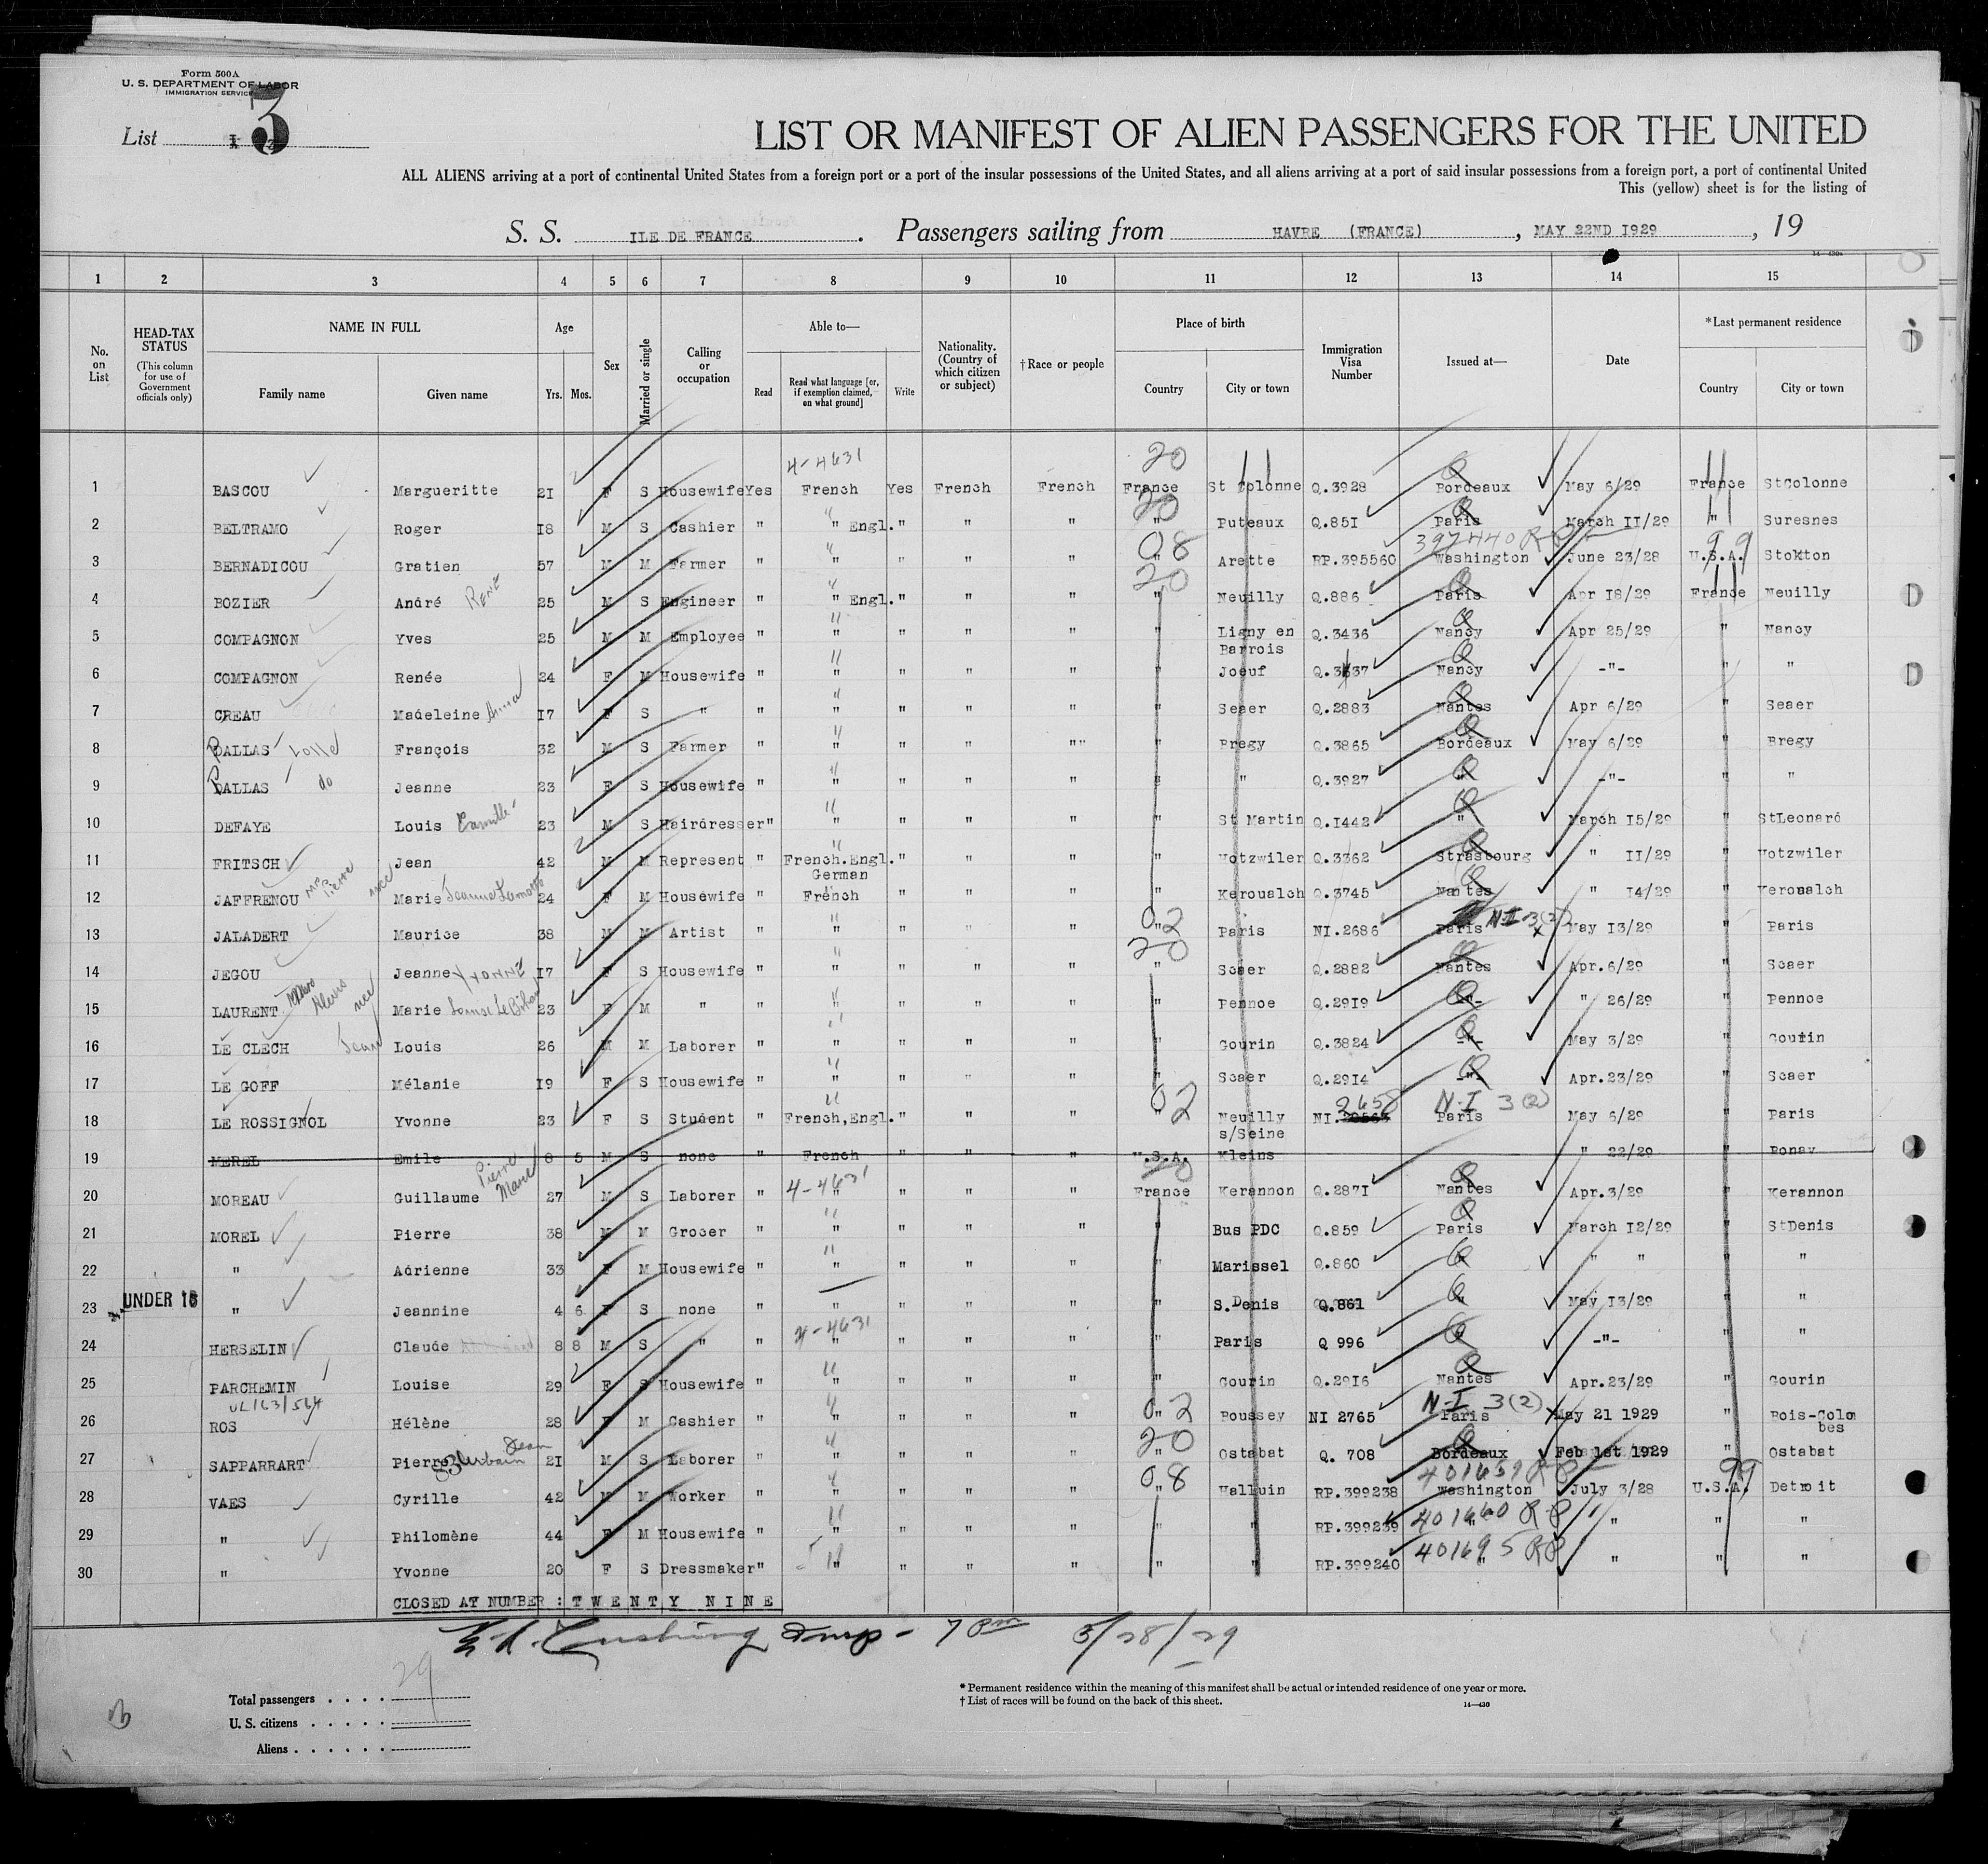 Form 500A
U. S. DEPARTMENT OF LABOR
IMMIGRATION SERVICE
List 3
LIST OR MANIFEST OF ALIEN PASSENGERS FOR THE UNITED
ALL ALIENS arriving at a port of continental United States from a foreign port or a port of the insular possessions of the United States, and all aliens arriving at a port of said insular possessions from a foreign port, a port of continental United
This (yellow) sheet is for the listing of
S. S. ILE DE FRANCE . Passengers sailing from HAVRE (FRANCE) , MAY 22ND 1929 , 19
14—430a
1 2 3 4 5 6 7 8 9 10 11 12 13 14 15
No. on List
HEAD-TAX STATUS (This column for use of Government officials only)
NAME IN FULL Family name Given name
Age Yrs. Mos.
Sex
Married or single
Calling or occupation
Able to— Read Read what language [or, if exemption claimed, on what ground] Write
Nationality. (Country of which citizen or subject)
†Race or people
Place of birth Country City or town
Immigration Visa Number
Issued at—
Date
*Last permanent residence Country City or town
4-4631 20
1 BASCOU Margueritte 21 F S Housewife Yes French Yes French French France St Colonne Q.3928 Bordeaux May 6/29 France StColonne
20
2 BELTRAMO Roger 18 M S Cashier " " Engl. " " " " Puteaux Q.851 Paris March 11/29 " Suresnes
08 397440 RP 99
3 BERNADICOU Gratien 57 M M Farmer " " " " " " Arette RP.395560 Washington June 23/28 U.S.A. Stokton
20
4 BOZIER André René 25 M S Engineer " " Engl. " " " " Neuilly Q.886 Paris Apr 18/29 France Neuilly
5 COMPAGNON Yves 25 M M Employee " " " " " " Ligny en Barrois Q.3436 Nancy Apr 25/29 " Nancy
6 COMPAGNON Renée 24 F M Housewife " " " " " " Joeuf Nancy -"- " "
7 CREAU Madeleine Anna 17 F S " " " " " " " Seaer Q.2883 Nantes Apr 6/29 " Seaer
8 DALLAS François 32 M S Farmer " " " " "" " Bregy Q.3865 Bordeaux May 6/29 " Bregy
9 DALLAS do Jeanne 23 F S Housewife " " " " " " " Q.3927 " -"- " "
10 DEFAYE Louis Camille 23 M S Hairdresser " " " " " " St Martin Q.1442 " March 15/29 " StLeonard
11 FRITSCH Jean 42 M M Represent " French.Engl. German " " " " Hotzwiler Q.3362 Strasbourg " 11/29 " Hotzwiler
12 JAFFRENOU Mrs Pierre nee Marie Jeanne 24 F M Housewife " French " " " " Keroualch Q.3745 Nantes " 14/29 " Keroualch
02 N-I 3(2)
13 JALADERT Maurice 38 M M Artist " " " " " " Paris NI.2686 Paris May 13/29 " Paris
20
14 JEGOU Jeanne Yvonne 17 F S Housewife " " " " " " Scaer Q.2882 Nantes Apr.6/29 " Scaer
15 LAURENT nee Marie Louise 23 F M " " " " " " " Pennoe Q.2919 -"- " 26/29 " Pennoe
16 LE CLECH Jean Louis 26 M M Laborer " " " " " " Gourin Q.3824 -"- May 3/29 " Gourin
17 LE GOFF Mélanie 19 F S Housewife " " " " " " Scaer Q.2914 -"- Apr.23/29 " Scaer
02 2658 N-I 3(2)
18 LE ROSSIGNOL Yvonne 23 F S Student " French,Engl. " " " " Neuilly s/Seine NI. Paris May 6/29 " Paris
19 MEREL Emile 8 5 M S none " French " " " U.S.A. Kleins " 22/29 "
4-4631 20
20 MOREAU Guillaume Pierre Marie 27 M S Laborer " " " " " France Kerannon Q.2871 Nantes Apr.3/29 " Kerannon
21 MOREL Pierre 38 M M Grocer " " " " " " Bus PDC Q.859 Paris March 12/29 " StDenis
22 " Adrienne 33 F M Housewife " " " " " " Marissel Q.860 " " " " "
23 UNDER 16 " Jeannine 4 6 F S none " " " " " " S.Denis Q.861 " May 13/29 " "
4-4631
24 HERSELIN Claude 8 8 M S " " " " " " " Paris Q 996 " -"- " "
25 PARCHEMIN Louise 29 F S Housewife " " " " " " Gourin Q.2916 Nantes Apr.23/29 " Gourin
02 N-I 3(2)
26 ROS Hélène 28 F M Cashier " " " " " " Boussey NI 2765 Paris May 21 1929 " Bois-Colombes
20
27 SAPPARRART Pierre Jean Urbain 21 M S Laborer " " " " " " Ostabat Q. 708 Bordeaux Feb 1st 1929 " Ostabat
08 401659 RP 99
28 VAES Cyrille 42 M M Worker " " " " " " Halluin RP.399238 Washington July 3/28 U.S.A. Detroit
401660 RP
29 " Philomène 44 F M Housewife " " " " " " " RP.399239 " " " "
401695 RP
30 " Yvonne 20 F S Dressmaker " " " " " " " RP.399240 " " " "
CLOSED AT NUMBER : TWENTY NINE
Cushing Insp - 7 Pm 5/28/29
29
Total passengers . . . .
U. S. citizens . . . . .
Aliens . . . . . .
* Permanent residence within the meaning of this manifest shall be actual or intended residence of one year or more.
† List of races will be found on the back of this sheet.
14—430